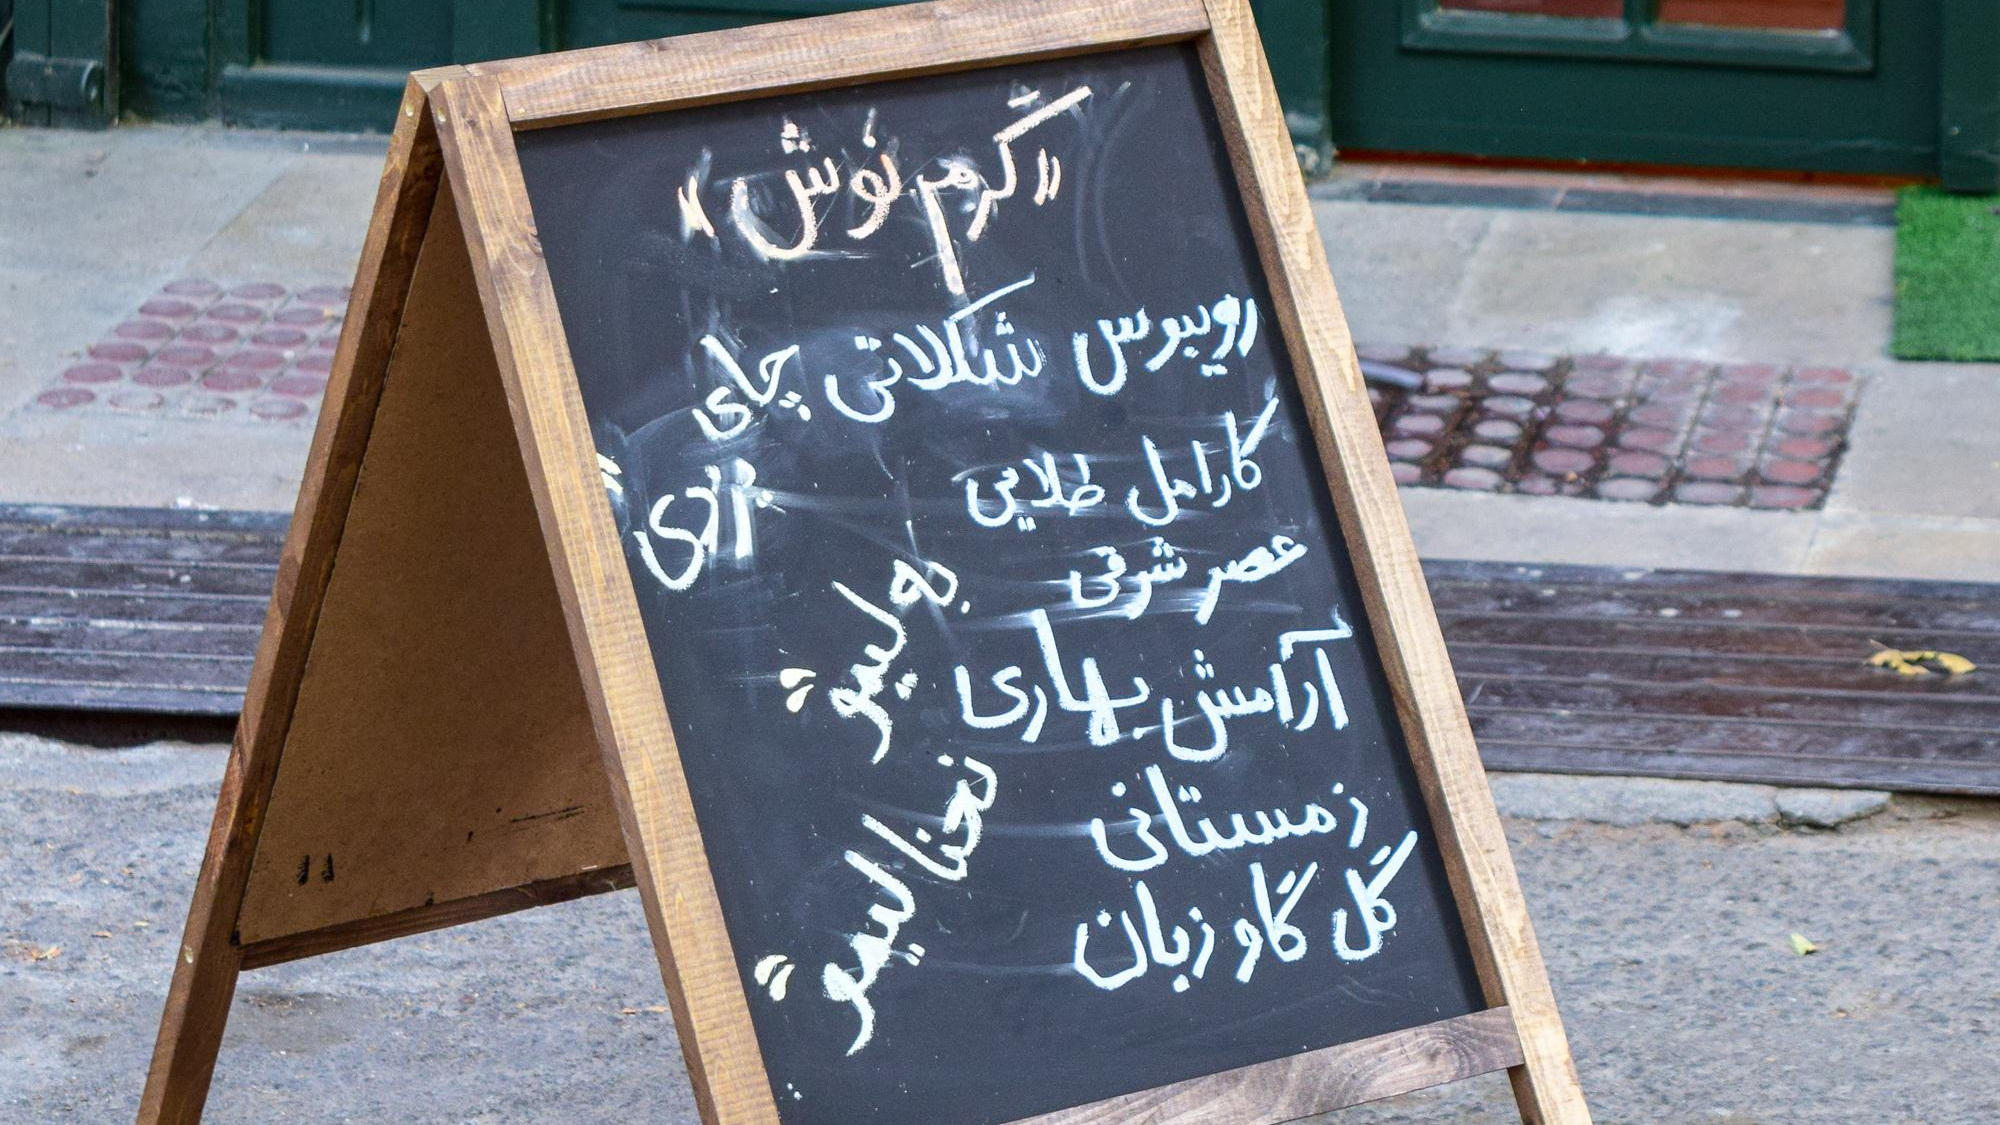 «گرم نوش»
رویبوس شکلاتی
کارامل طلایی
عصر شرقی
آرامش بهاری
زمستانی
گل گاو زبان
چای
به لیمو"
نعنا لیمو"